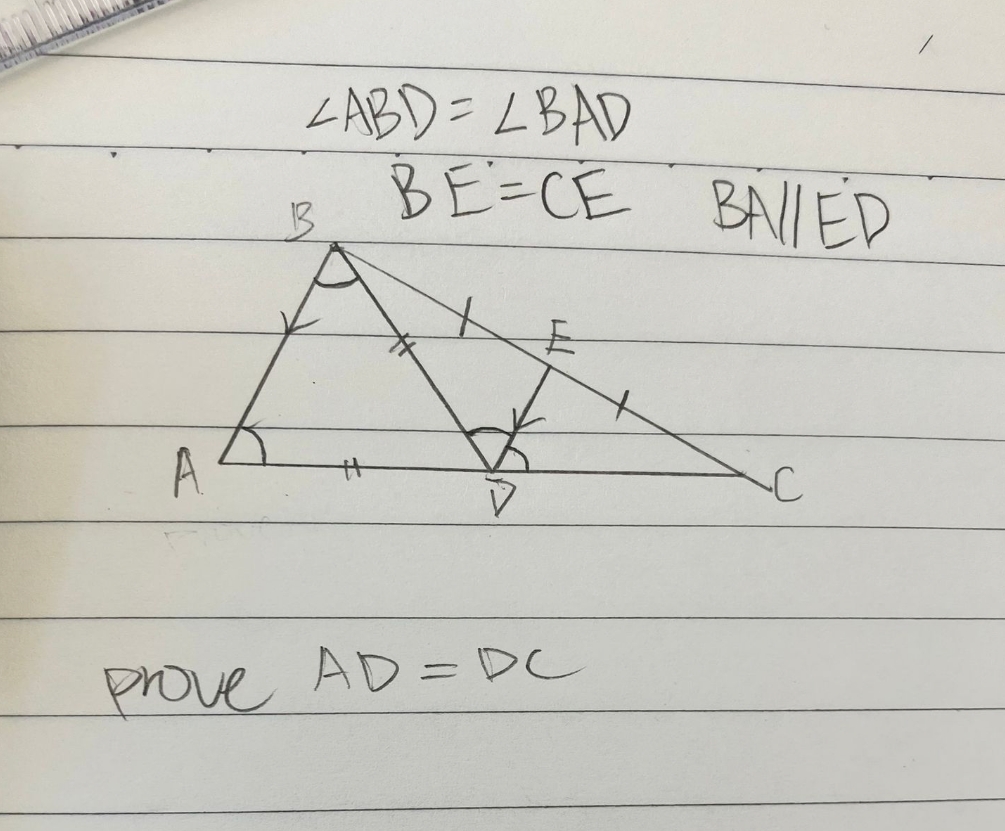 ∠ABD = ∠BAD
BE = CE BA//ED
B
E
A
D
C
prove AD = DC